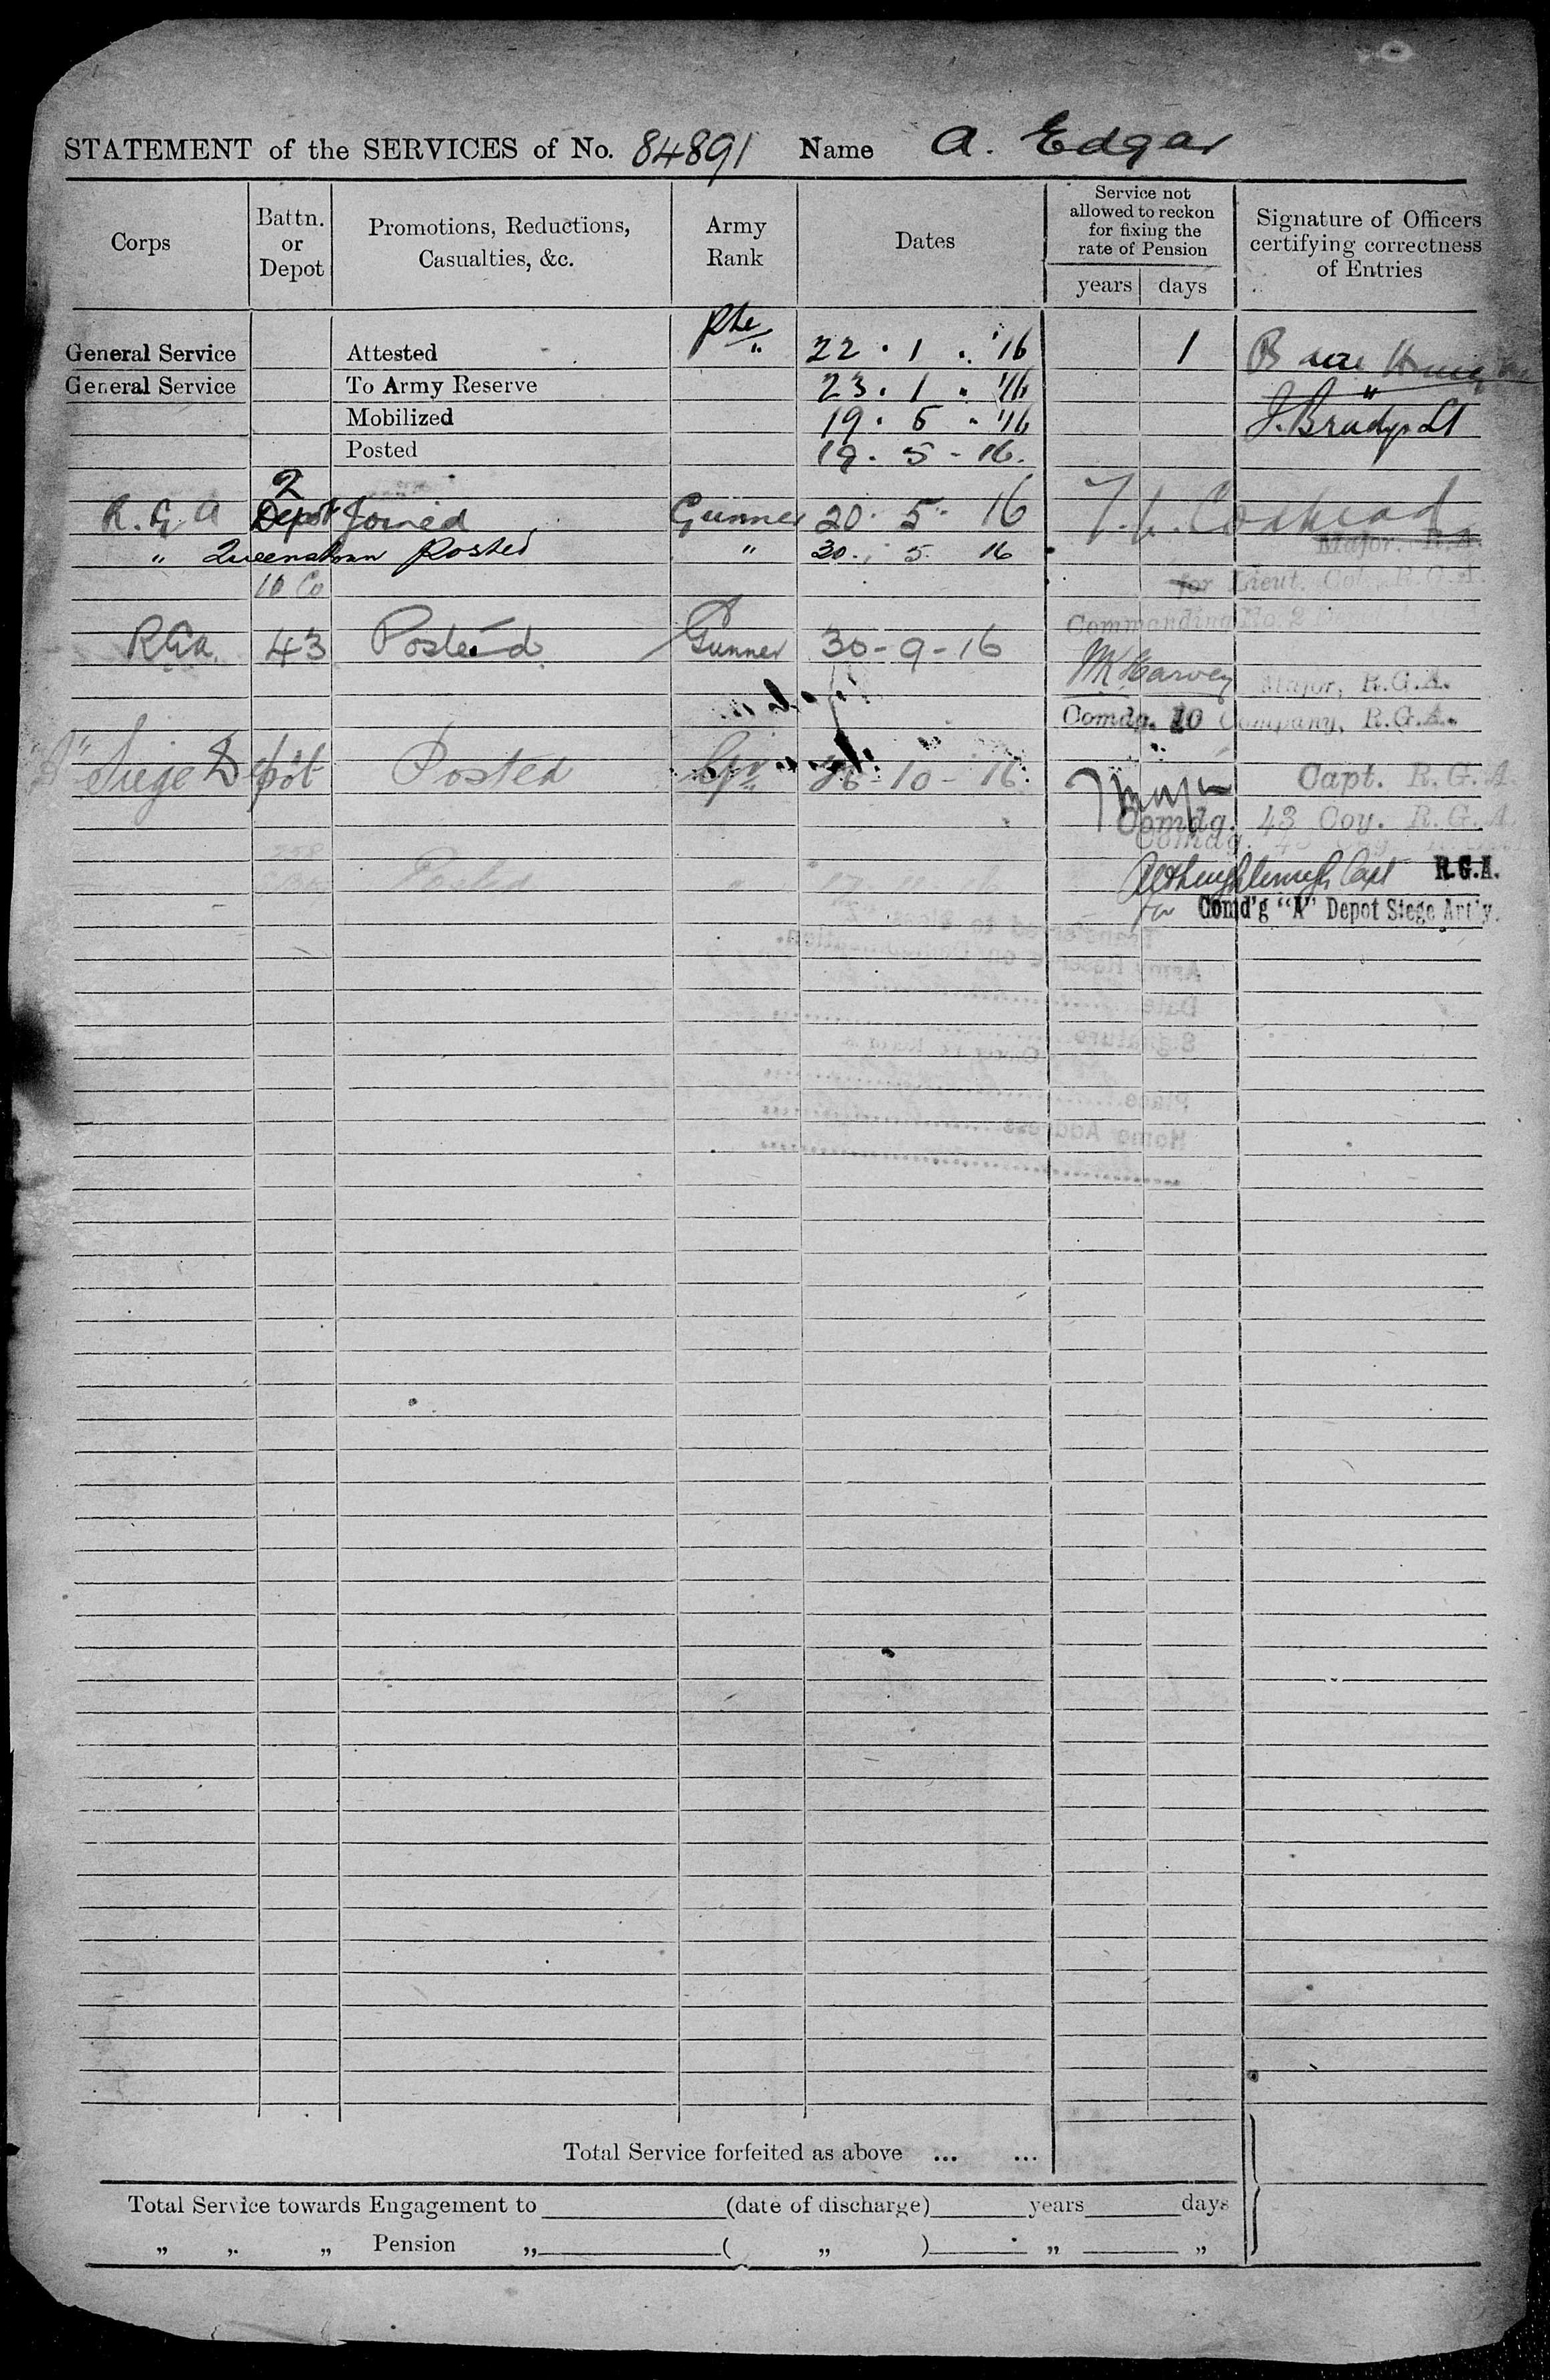 STATEMENT of the SERVICES of No. 84891 Name A. Edgar
Corps
Battn. or Depot
Promotions, Reductions, Casualties, &c.
Army Rank
Dates
Service not allowed to reckon for fixing the rate of Pension
years days
Signature of Officers certifying correctness of Entries
Pte
General Service Attested " 22 . 1 . '16 1
General Service To Army Reserve 23 . 1 . '16 "
Mobilized 19 . 5 . '16 J. Brady Lt
Posted 19 . 5 - 16.
2
R. G. A Depot Joined Gunner 20 . 5 . 16
Major. R.A.
" Queenstown Posted " 30 . 5 . 16
10 Co for Lieut. Col. R.G.A.
Commanding No. 2
RGA. 43 Posted Gunner 30-9-16
Harvey Major, R.G.A.
Comdg. 10 Company, R.G.A.
"A" Siege Depôt Posted Gr 26-10-16 Capt. R.G.A.
Comdg. 43 Coy. R.G.A.
Posted Capt R.G.A.
for Comd'g "A" Depot Siege Art'y.
Transferred to
Army Reserve on Demobilization.
Date
Signature
Place
Home Address
Total Service forfeited as above ... ...
Total Service towards Engagement to (date of discharge) years days
" " " Pension " ( " ) " "